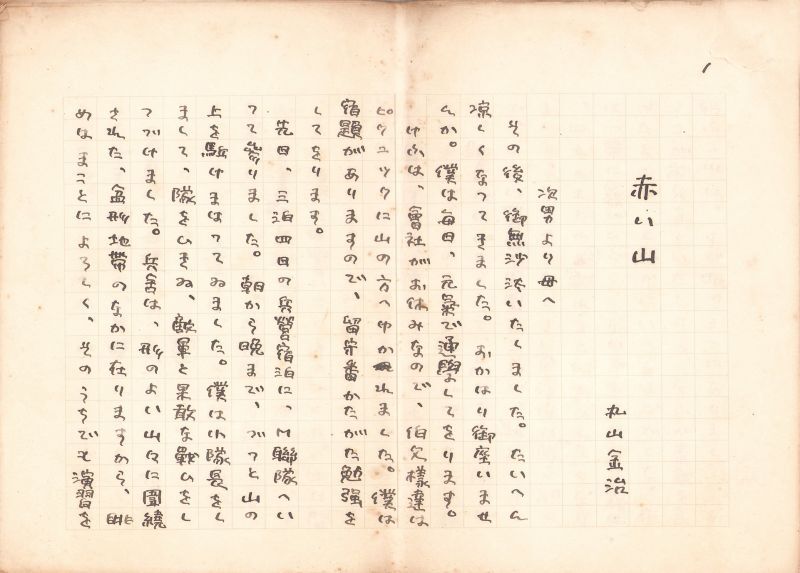 1
赤い山
丸山金治
次男より母へ
その後、御無沙汰いたしました。たいへん
凉しくなつてきました。おかはり御座いませ
んか。僕は毎日、元氣で通學してをります。
けふは、會社がお休みなので、伯父様達は
ピクニックに山の方へゆかれました。僕は
宿題がありますので、留守番かたがた勉強を
してをります。
先日、三泊四日の兵營宿泊に、M聯隊へい
つて參りました。朝から晩まで、づつと山の
上を駈けまはつてゐました。僕は小隊長をし
まして、隊をひきゐ、敵軍と果敢な戰ひをし
つづけました。兵舍は、形のよい山々に圍繞
された、盆形地帶のなかに在りますから、眺
めはまことによろしく、そのうちでも演習を